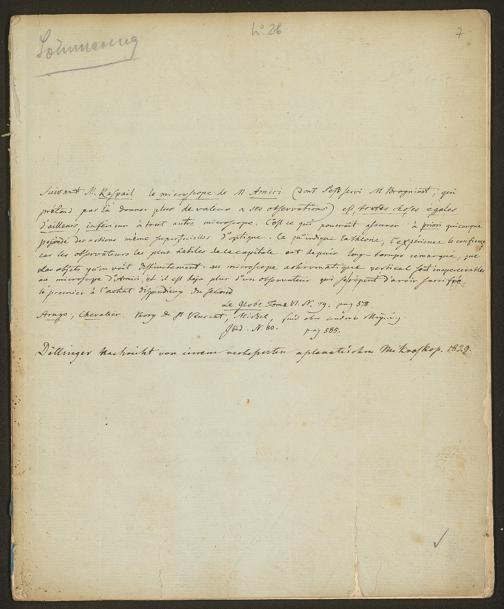 Sömmering
No. 26
7
Suivant M. Raspail le microscope de M Amici (dont s'est servi M Brogniart, qui
prétend par là donner plus de valeur a ses observations) est, toutes choses égales
d'ailleurs, inférieur à tout autre microscope. C'est ce que pourrait assurer à priori quiconque
possède des notions même superficielles d'optique. Ce qu'indique la théorie, l'expérience le confirme
car les observateurs les plus habiles de la capitale ont depuis long-temps remarqué, que
des objets qu'on voit distinctement au microscope achromatique vertical sont inapercevables
au microscope d'Amici et il est déjà plus d'un observateur qui se repent d'avoir sacrifié
le premier à l'achat dispendieux du second
Le Globe Tome VI. N. 79. pag 578
Arago, Chevalier Bory de St Vincent, Mirbel, sind aber anderer Meinung
Ibid. N 80. pag 585.
Döllinger Nachricht von einem verbesserten aplanatischen Mikroskop. 1829.